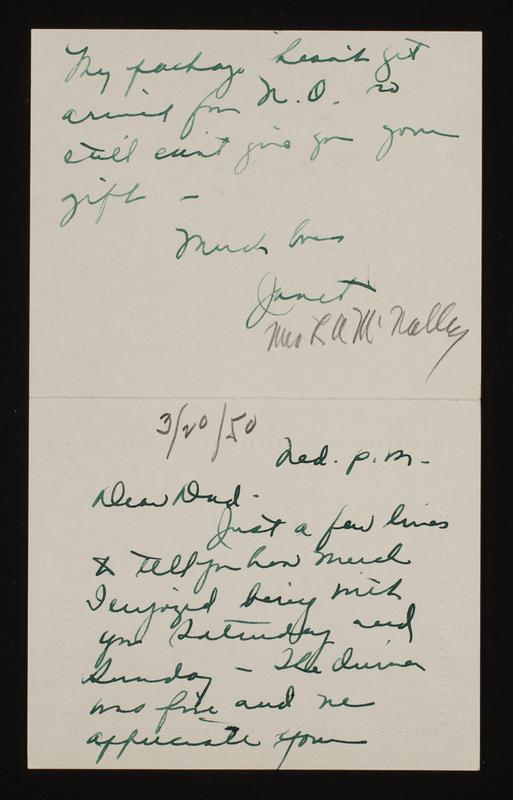 My package hasn't yet
arrived from N.O. so
still can't give you your
gift -
Much love
Janet
Mrs L A McNalley
3/20/50
Wed. p.m.
Dear Dad -
Just a few lines
to tell you how much
I enjoyed being with
you Saturday and
Sunday - The dinner
was fine and we
appreciate your